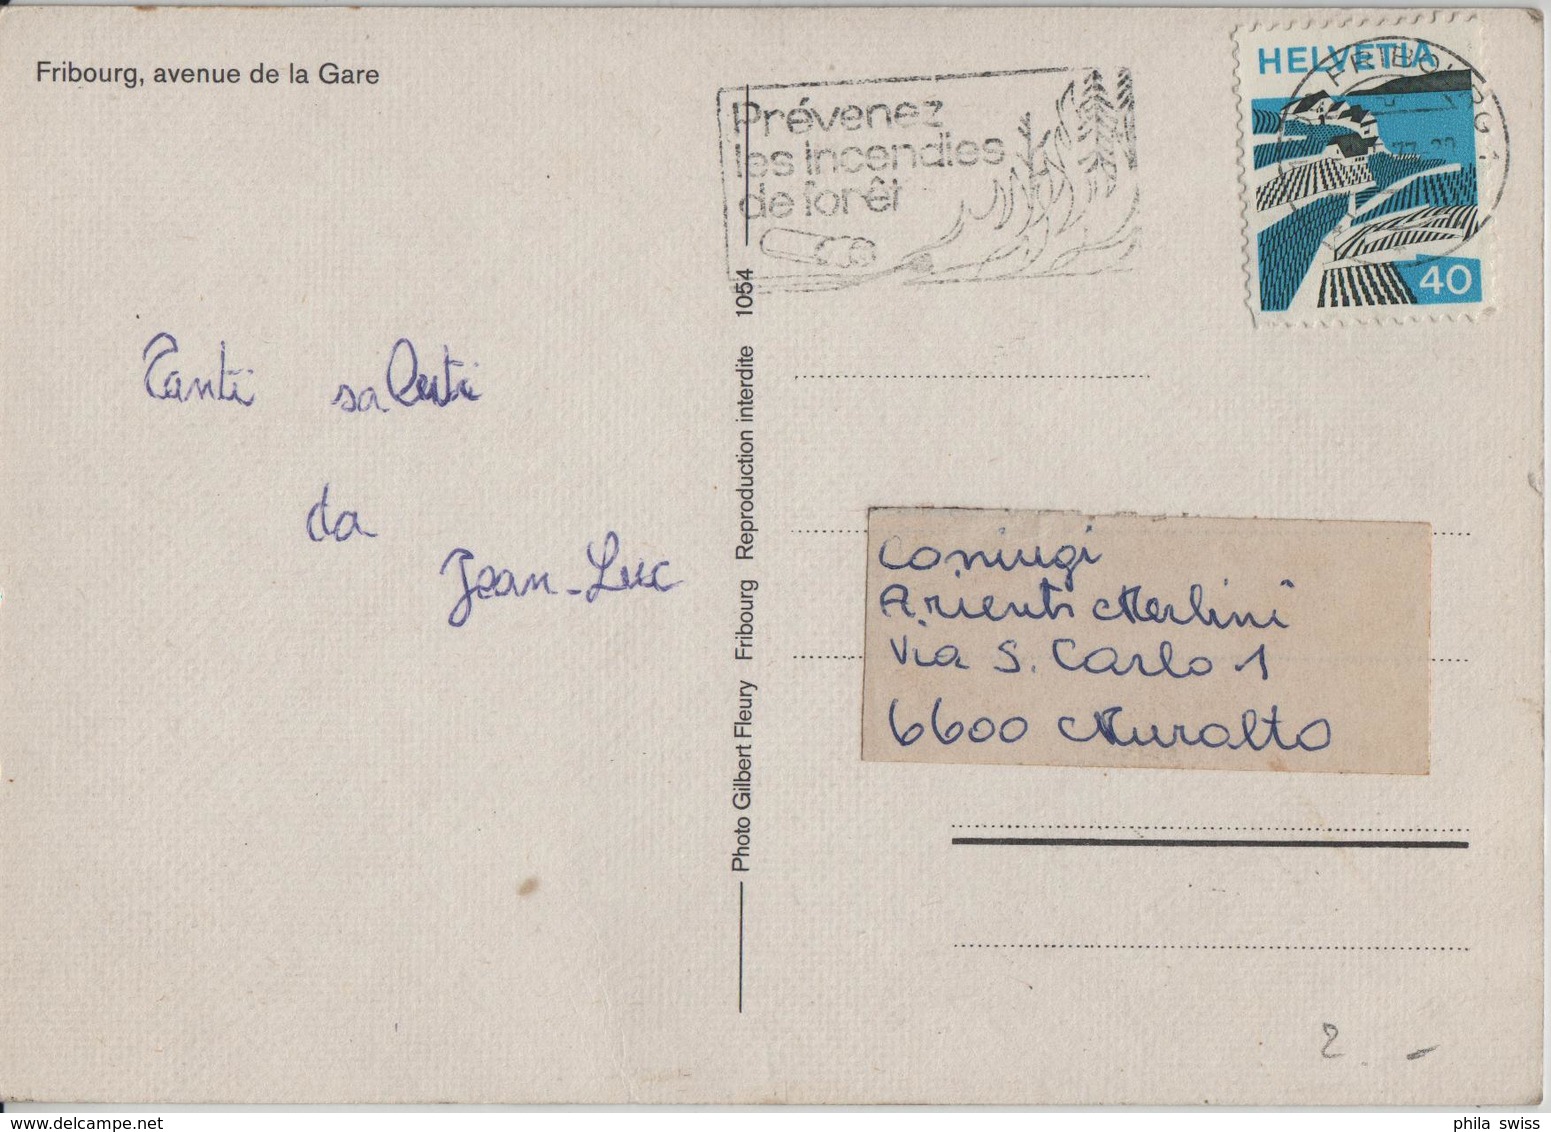 Fribourg, avenue de la Gare
Prévenez
les incendies
de forêt
HELVETIA
FRIBOURG 1
40
Tanti saluti
da
Jean-Luc
Photo Gilbert Fleury Fribourg Reproduction interdite 1054
Coniugi
Arienti Merlini
Via S. Carlo 1
6600 Muralto
2.-
www.delcampe.net
phila_swiss